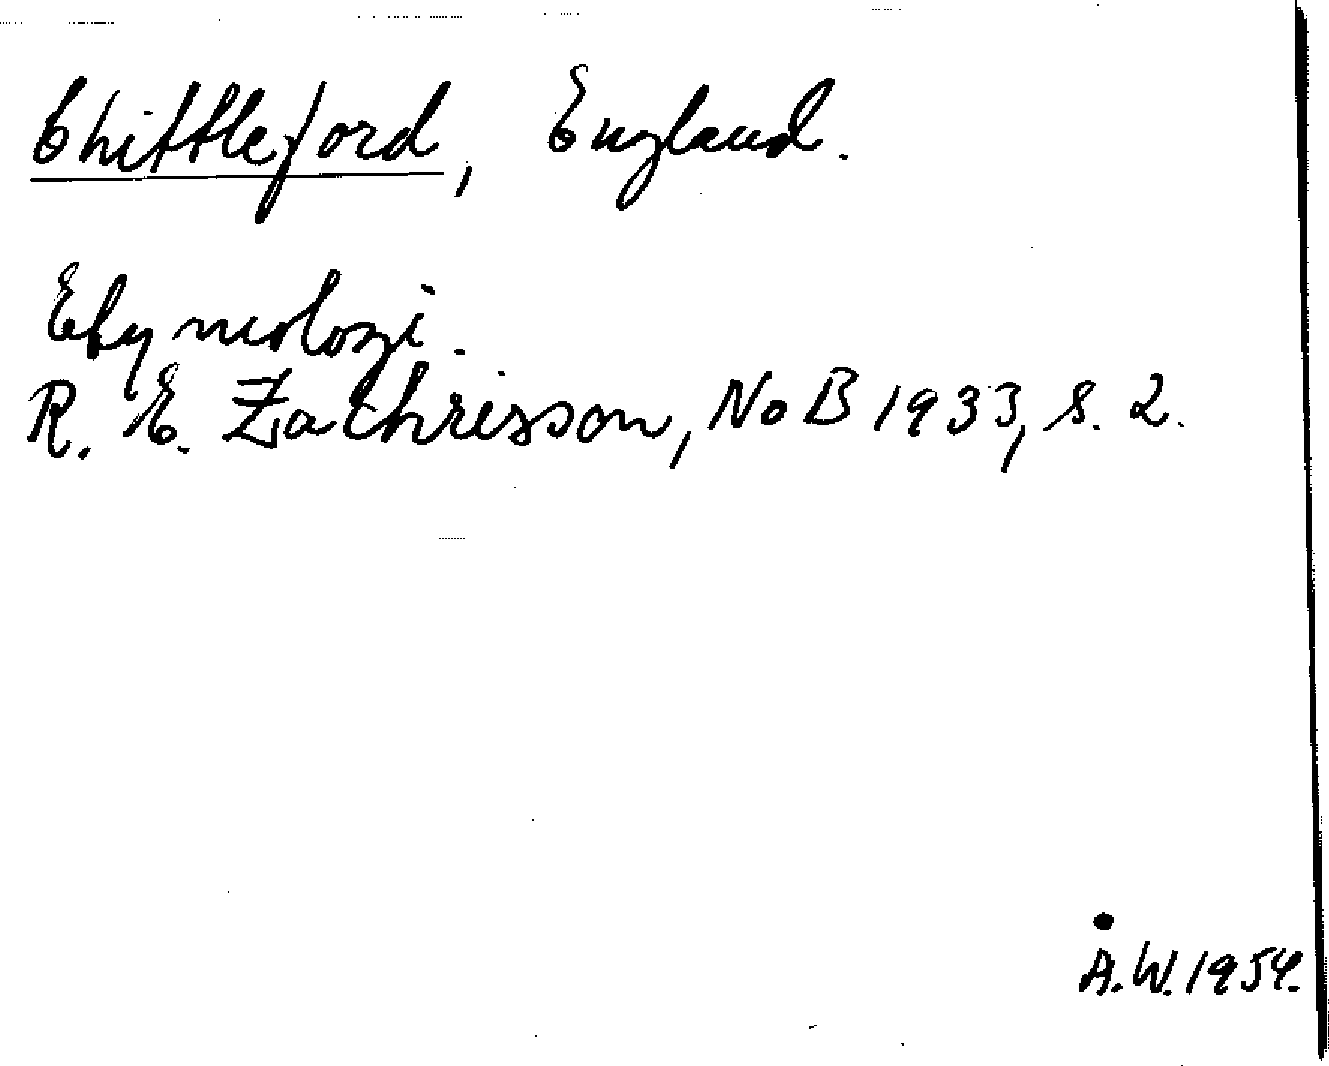 Chittleford, England.
Etymologi.
R. E. Zachrisson, NoB 1933, s. 2.
Å.W. 1954.